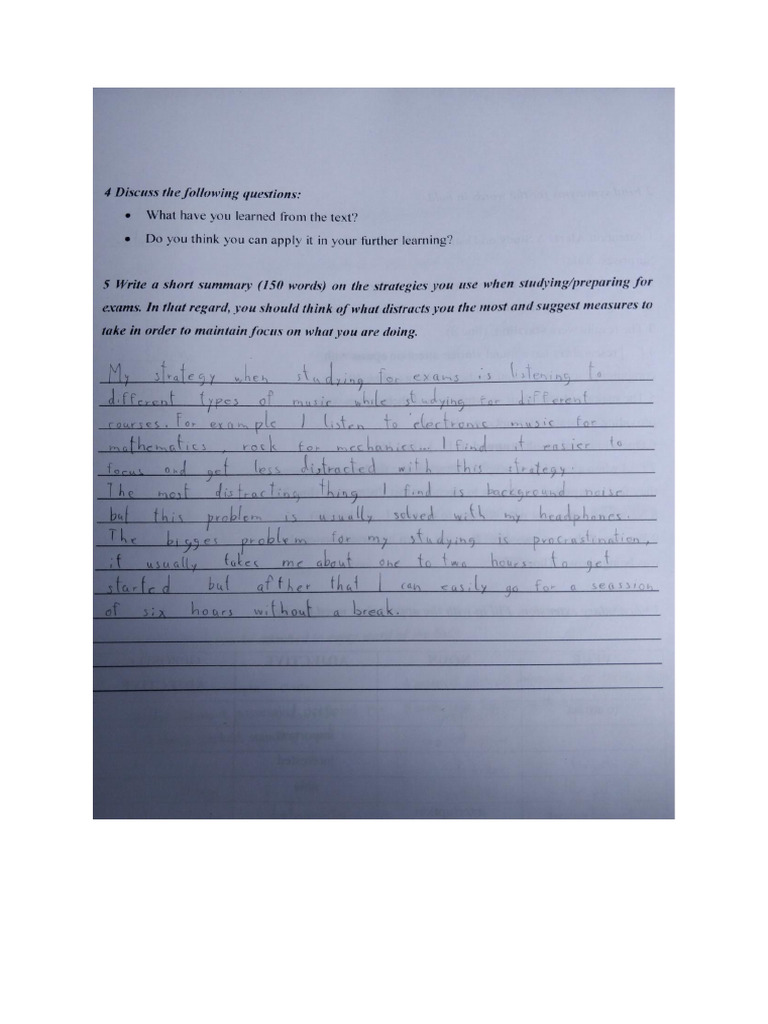 4 Discuss the following questions:
• What have you learned from the text?
• Do you think you can apply it in your further learning?
5 Write a short summary (150 words) on the strategies you use when studying/preparing for
exams. In that regard, you should think of what distracts you the most and suggest measures to
take in order to maintain focus on what you are doing.
My strategy when studying for exams is listening to
different types of music while studying for different
courses. For example I listen to electronic music for
mathematics, rock for mechanics... I find it easier to
focus and get less distracted with this strategy.
The most distracting thing I find is background noise
but this problem is usually solved with my headphones.
The bigges problem for my studying is procrastination,
it usually takes me about one to two hours to get
started but afther that I can easily go for a seassion
of six hours without a break.